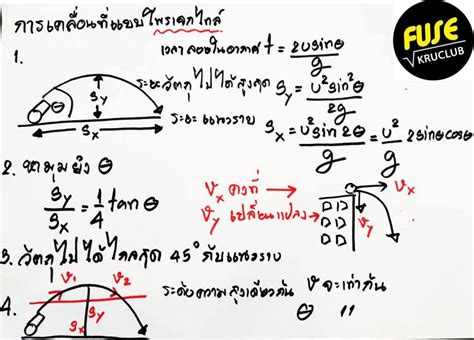 การเคลื่อนที่แบบโพรเจกไทล์
FUSE
√KRUCLUB
1.
เวลาลอยในอากาศ t = 2usinθ/g
ระยะวัตถุไปได้สูงสุด Sy = u²sin²θ/2g
ระยะแนวราบ Sx = u²sin2θ/g = u²/g 2sinθcosθ
θ
Sy
Sx
2. หามุมยิง θ
Sy/Sx = 1/4 tan θ
vx คงที่
vy เปลี่ยนแปลง
vx
vy
3. วัตถุไปได้ไกลสุด 45° กับแนวราบ
4.
v1
v2
Sy
Sx
ระดับความสูงเดียวกัน v จะเท่ากัน
θ "